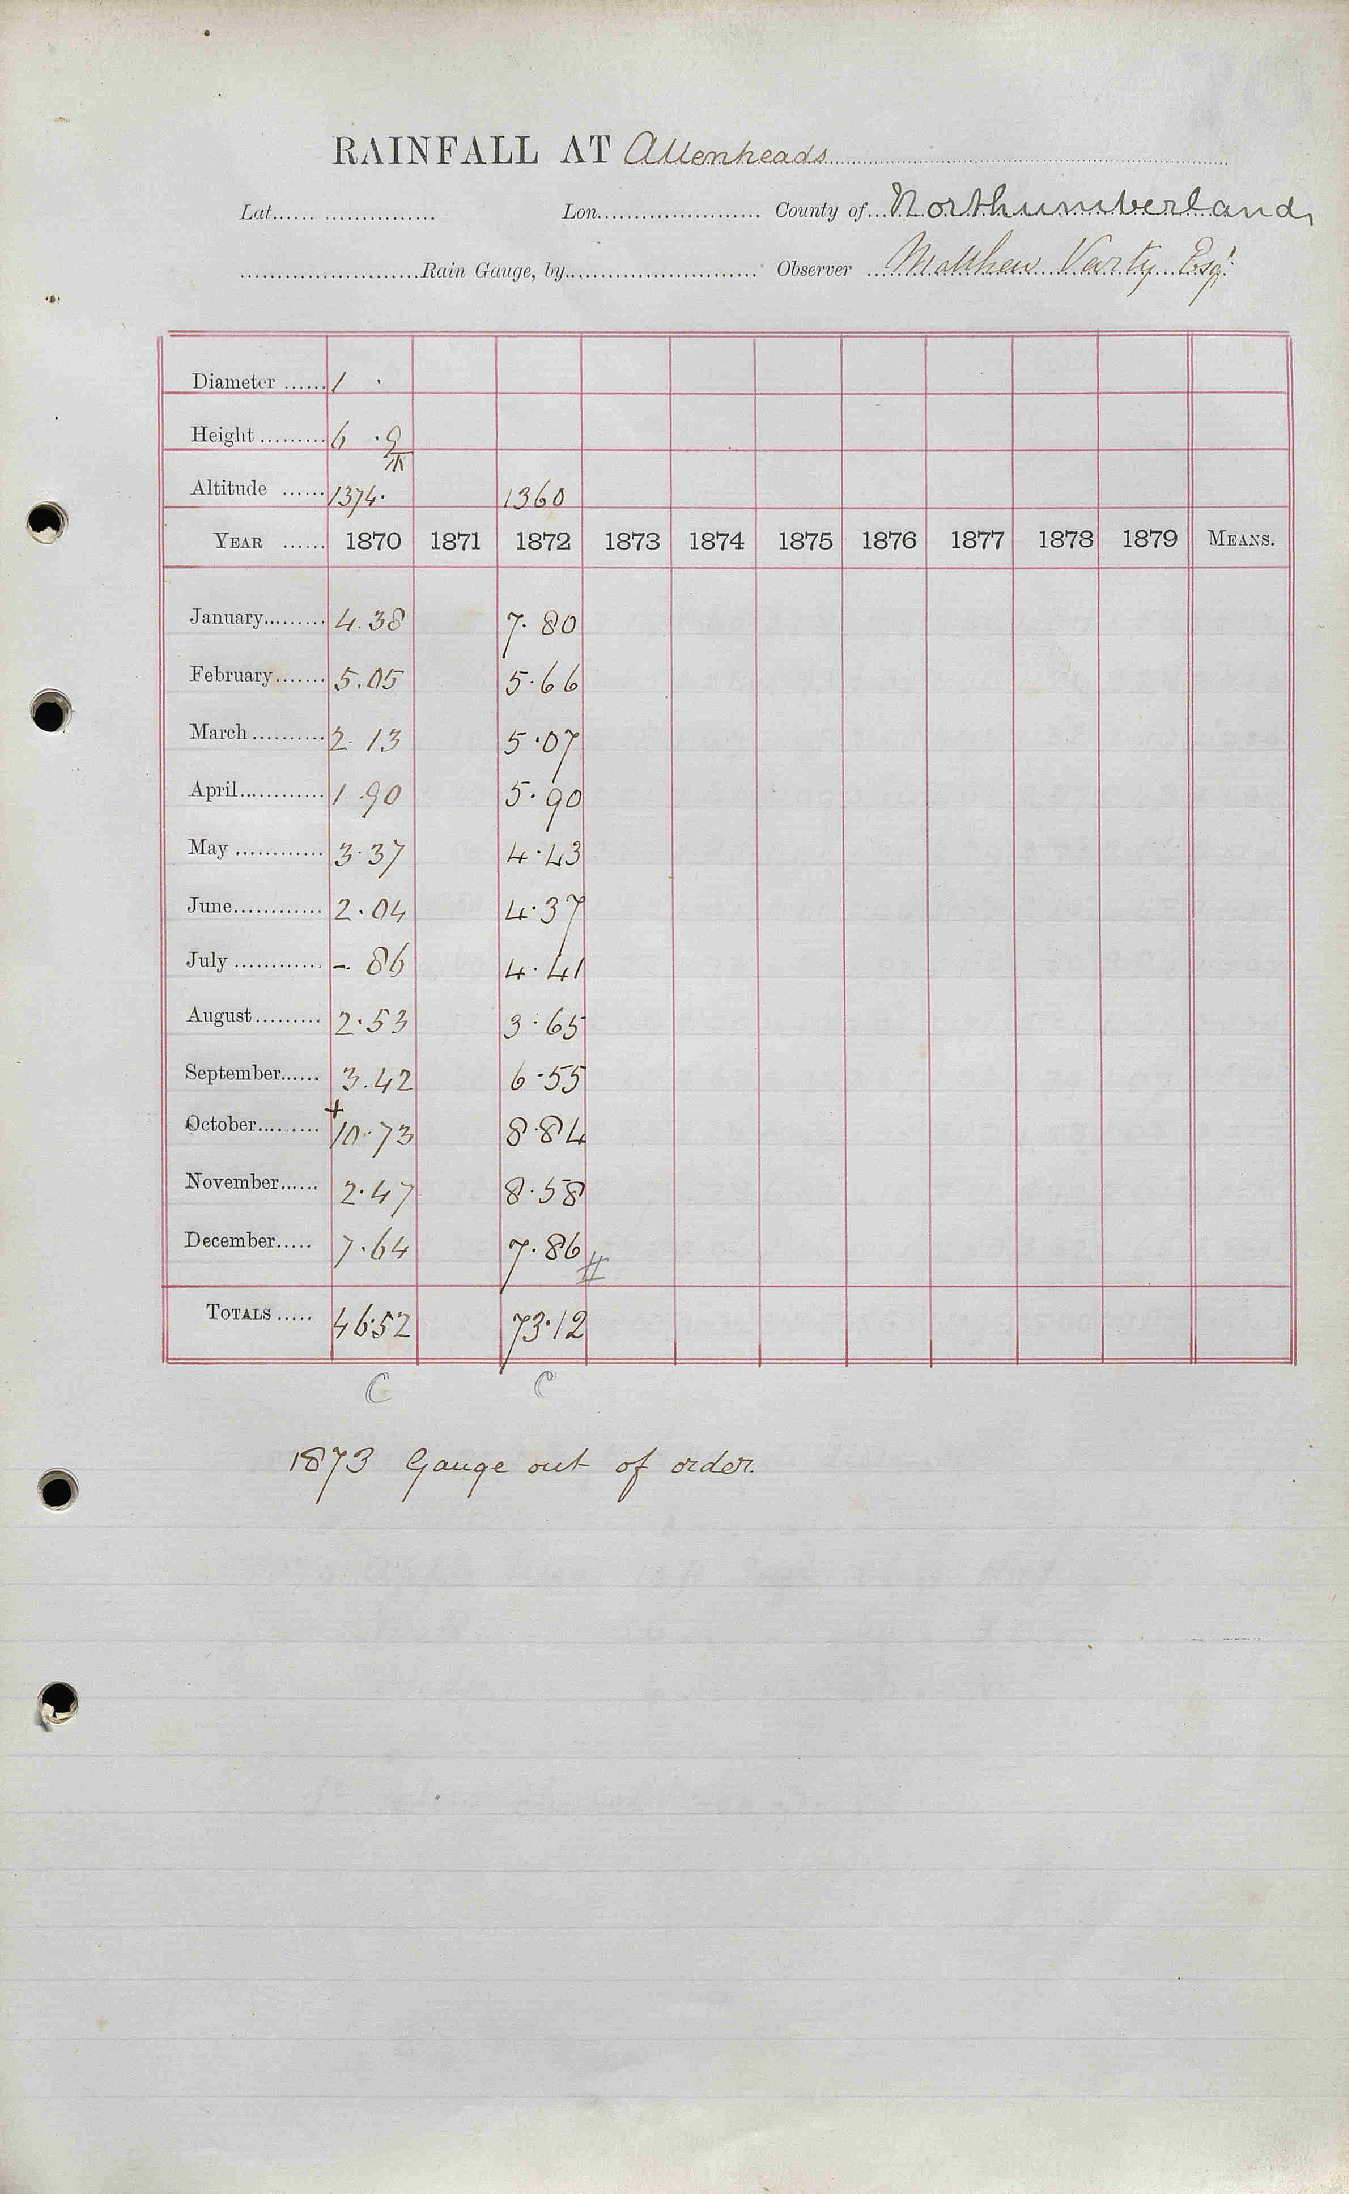 RAINFALL AT Allenheads
Lat. Lon. County of Northumberland
Rain Gauge, by Observer Matthew Varty Esqr
Diameter 1 .
Height 6 . 9
Altitude 1374. 1360
YEAR 1870 1871 1872 1873 1874 1875 1876 1877 1878 1879 MEANS.
January 4.38 7.80
February 5.05 5.66
March 2.13 5.07
April 1.90 5.90
May 3.37 4.43
June 2.04 4.37
July - 86 4.41
August 2.53 3.65
September 3.42 6.55
October +10.73 8.84
November 2.47 8.58
December 7.64 7.86 #
TOTALS 46.52 73.12
C C
1873 Gauge out of order.